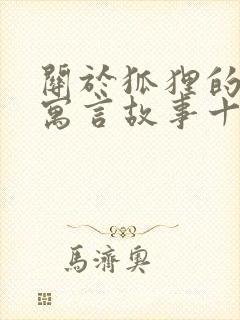 關於狐狸的
寓言故事十
馬濟奧